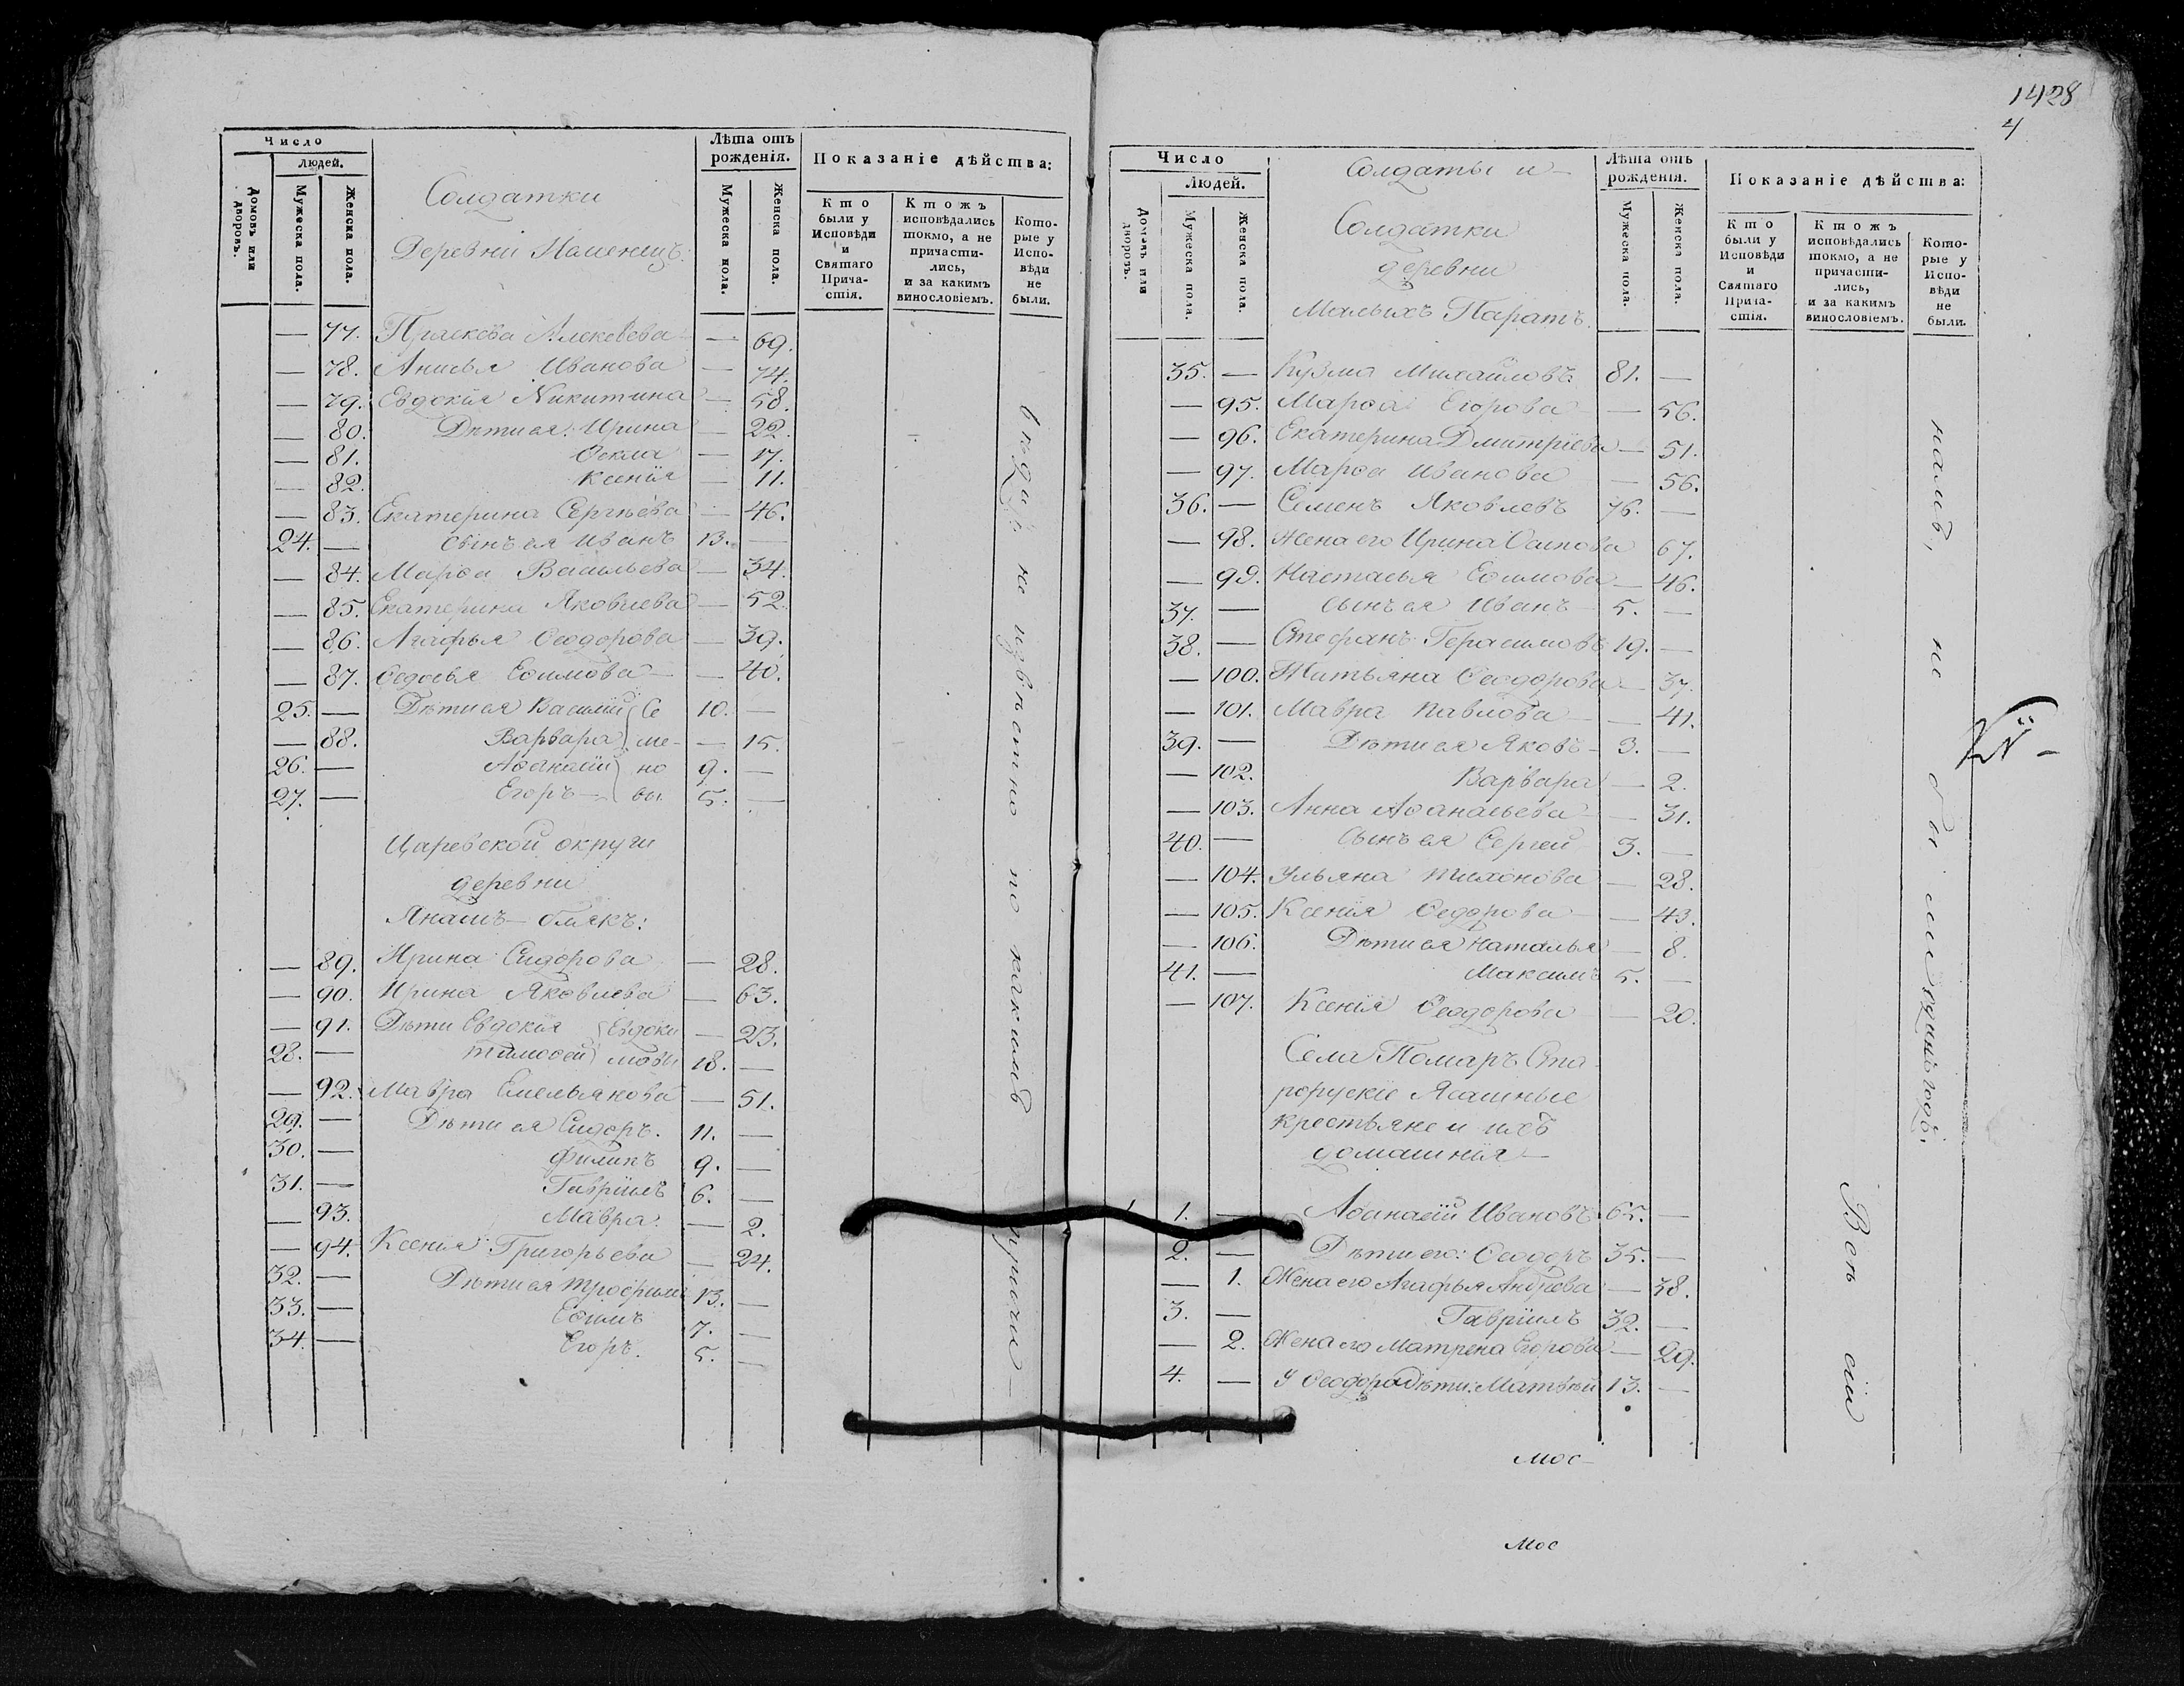 Число
Людей.
Домовъ или дворовъ.
Мужеска пола.
Женска пола.
Солдатки
Деревни
Лѣта отъ рожденія.
Мужеска пола.
Женска пола.
Показаніе дѣйства:
Кто были у Исповѣди и Святаго Прича-стія.
Ктожъ исповѣдались токмо, а не причасти-лись, и за какимъ винословіемъ.
Кото-рые у Испо-вѣди не были.
— 77. Праскева Алексѣева — 69.
— 78. Анисья Иванова — 74.
— 79. Евдокія Никитина — 58.
— 80. Дѣти ея: Ирина — 22.
— 81. Ѳекла — 17.
— 82. Ксенія — 11.
— 83. Екатерина Сергѣева — 46.
24. — Сынъ ея Иванъ 13. —
— 84. Марѳа Васильева — 34.
— 85. Екатерина Яковлева — 52.
— 86. Агафья Ѳеодорова — 39.
— 87. Ѳедосья Еѳимова — 40.
25. — Дѣти ея Василій Се 10. —
— 88. Варвара ме- — 15.
26. — Аѳанасій но 9. —
27. — Егоръ вы 5. —
Царевской округи
деревни
89. Ирина Сидорова — 28.
— 90. Ирина Яковлева — 63.
— 91. Дѣти Евдокія Евдоки — 23.
28. — Тимоѳей мовы 18. —
— 92. Мавра Емельянова — 51.
29. — Дѣти ея Сидоръ. 11. —
30. — Филипъ 9. —
31. — Гавріилъ 6. —
— 93. Мавра. — 2.
— 94. Ксенія Григорьева — 24.
32. — Дѣти ея Трофимъ 13. —
33. — Еѳимъ 7. —
34. — Егоръ. 5. —
не извѣстно по какимъ причи-
1428
4
Число
Людей.
Домовъ или дворовъ.
Мужеска пола.
Женска пола.
Солдаты и
Солдатки
деревни
Малыхъ Паратъ.
Лѣта отъ рожденія.
Мужеска пола.
Женска пола.
Показаніе дѣйства:
Кто были у Исповѣди и Святаго Прича-стія.
Ктожъ исповѣдались токмо, а не причасти-лись, и за какимъ винословіемъ.
Кото-рые у Испо-вѣди не были.
35. — Кузма Михайловъ 81. —
— 95. Марѳа Егорова — 56.
— 96. Екатерина Дмитріева — 51.
— 97. Марѳа Иванова — 56.
36. — Семенъ Яковлевъ 76. —
— 98. Жена его Ирина Осипова 67.
— 99. Настасья Еѳимова — 46.
37. — Сынъ ея Иванъ 5. —
38. — Стефанъ Герасимовъ 19. —
— 100. Татьяна Ѳеодорова — 37.
— 101. Мавра Павлова — 41.
39. — Дѣти ея Яковъ 3. —
— 102. Варвара — 2.
— 103. Анна Аѳанасьева — 31.
40. — Сынъ ея Сергей 3. —
— 104. Ульяна Тихонова — 28.
— 105. Ксенія Ѳедорова — 43.
— 106. Дѣти ея Наталья — 8.
41. — Максимъ 5. —
— 107. Ксенія Ѳеодорова — 20.
Села Помаръ Ста-
роруские Ясашные
крестьяне и ихъ
домашнія —
1. — Аѳанасій Ивановъ 65. —
2. — Дѣти его: Ѳеодоръ 35. —
— 1. Жена его Агафья Андреева — 38.
3. — Гавріилъ 32. —
— 2. Жена его Матрена Егорова — 29.
4. — У Ѳеодора дѣти: Матвѣй 13. —
намъ, не были
Всѣ сіи
Мос-
Мос